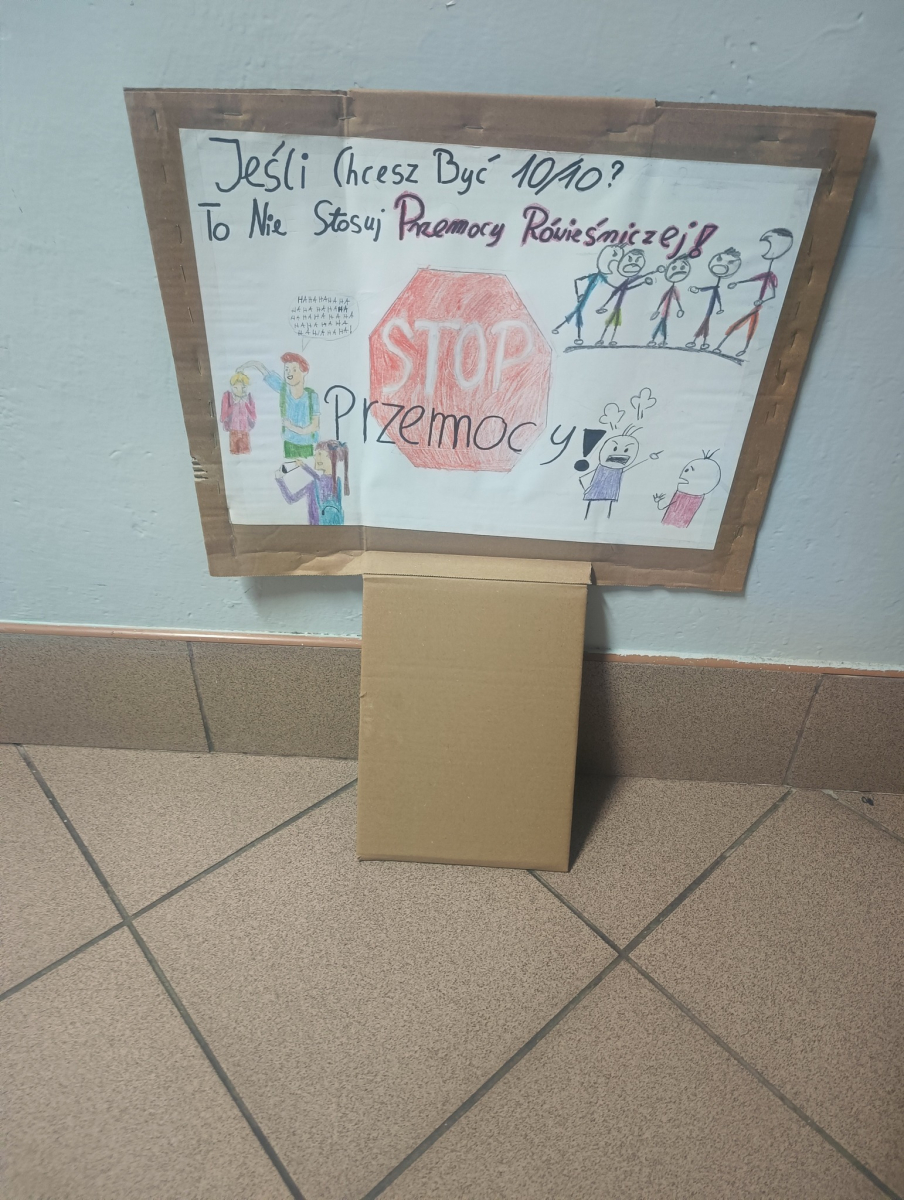 Jeśli Chcesz Być 10/10?
To Nie Stosuj Przemocy Rówieśniczej!
HAHAHAHAHA
HAHAHAHAHA
HAHAHAHAHA
HAHAHAHA
HAHAHAHA!
STOP
Przemocy!